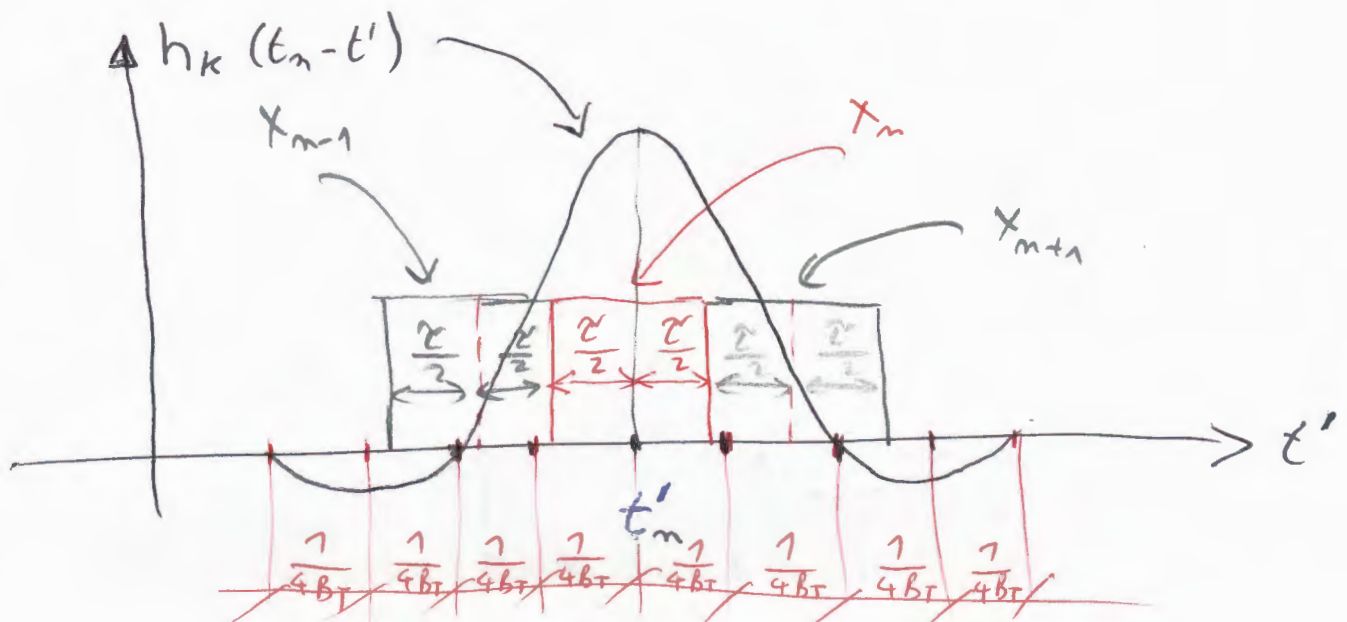 h_k (t_n - t')
x_{n-1}
x_n
x_{n+1}
τ/2 τ/2 τ/2 τ/2 τ/2 τ/2
t'
t'_n
1/4B_T 1/4B_T 1/4B_T 1/4B_T 1/4B_T 1/4B_T 1/4B_T 1/4B_T